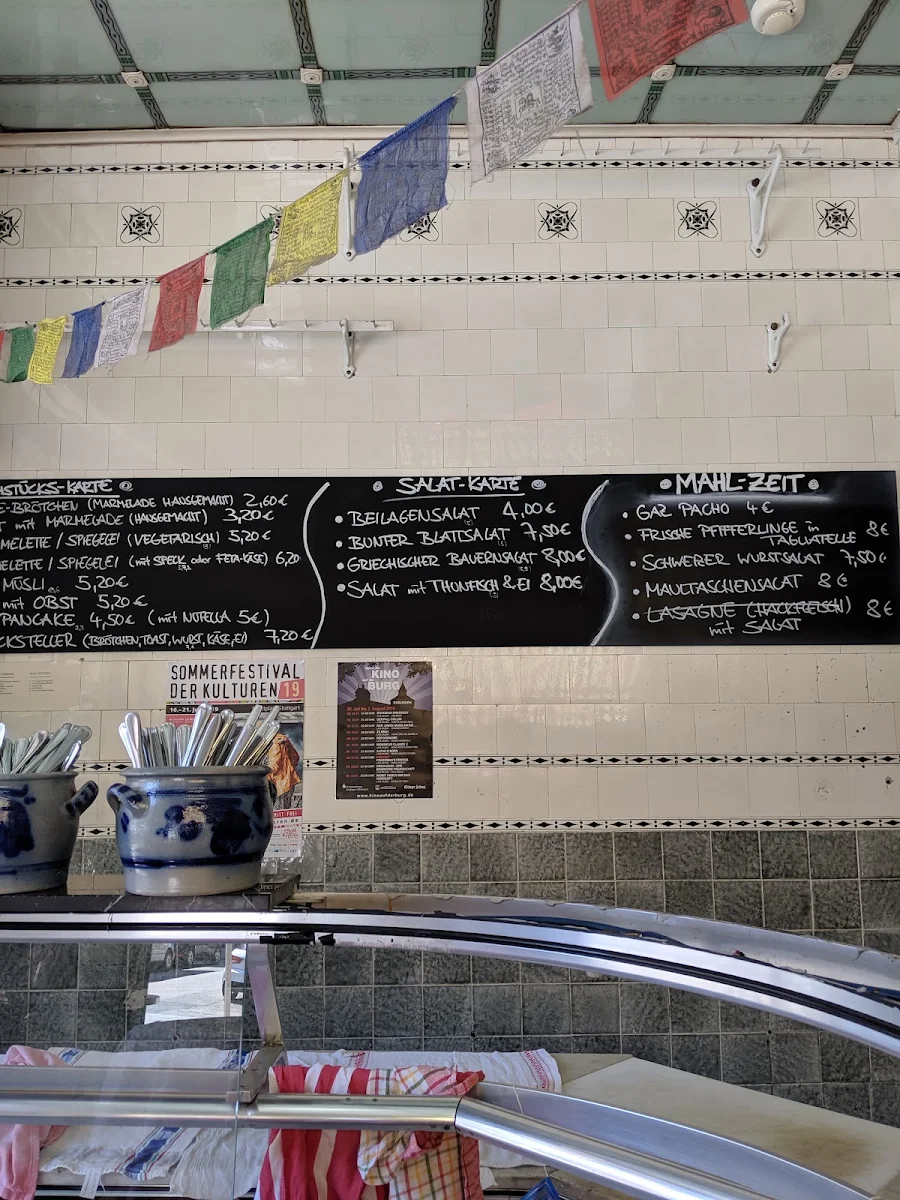 HSTÜCKS-KARTE
E-BRÖTCHEN (MARMELADE HAUSGEMACHT) 2,60 €
T mit MARMELADE (HAUSGEMACHT) 3,20 €
MELETTE / SPIEGELEI (VEGETARISCH) 5,20 €
ELETTE / SPIEGELEI (mit SPECK oder FETA-KÄSE) 6,20
MÜSLI 5,20 €
mit OBST 5,20 €
PANCAKE 4,50 € (mit NUTELLA 5 €)
CKSTELLER (BRÖTCHEN, TOAST, WURST, KÄSE, EI) 7,20 €
SALAT-KARTE
BEILAGENSALAT 4,00 €
BUNTER BLATTSALAT 7,50 €
GRIECHISCHER BAUERNSALAT 8,00 €
SALAT mit THUNFISCH & EI 8,00 €
MAHL-ZEIT
GAZ PACHO 4 €
FRISCHE PFIFFERLINGE in TAGLIATELLE 8 €
SCHWERER WURSTSALAT 7,50 €
MAULTASCHENSALAT 8 €
LASAGNE (HACKFLEISCH) 8 €
mit SALAT
SOMMERFESTIVAL
DER KULTUREN 19
16.–21.
KINO
BURG
www.kinoaufderburg.de